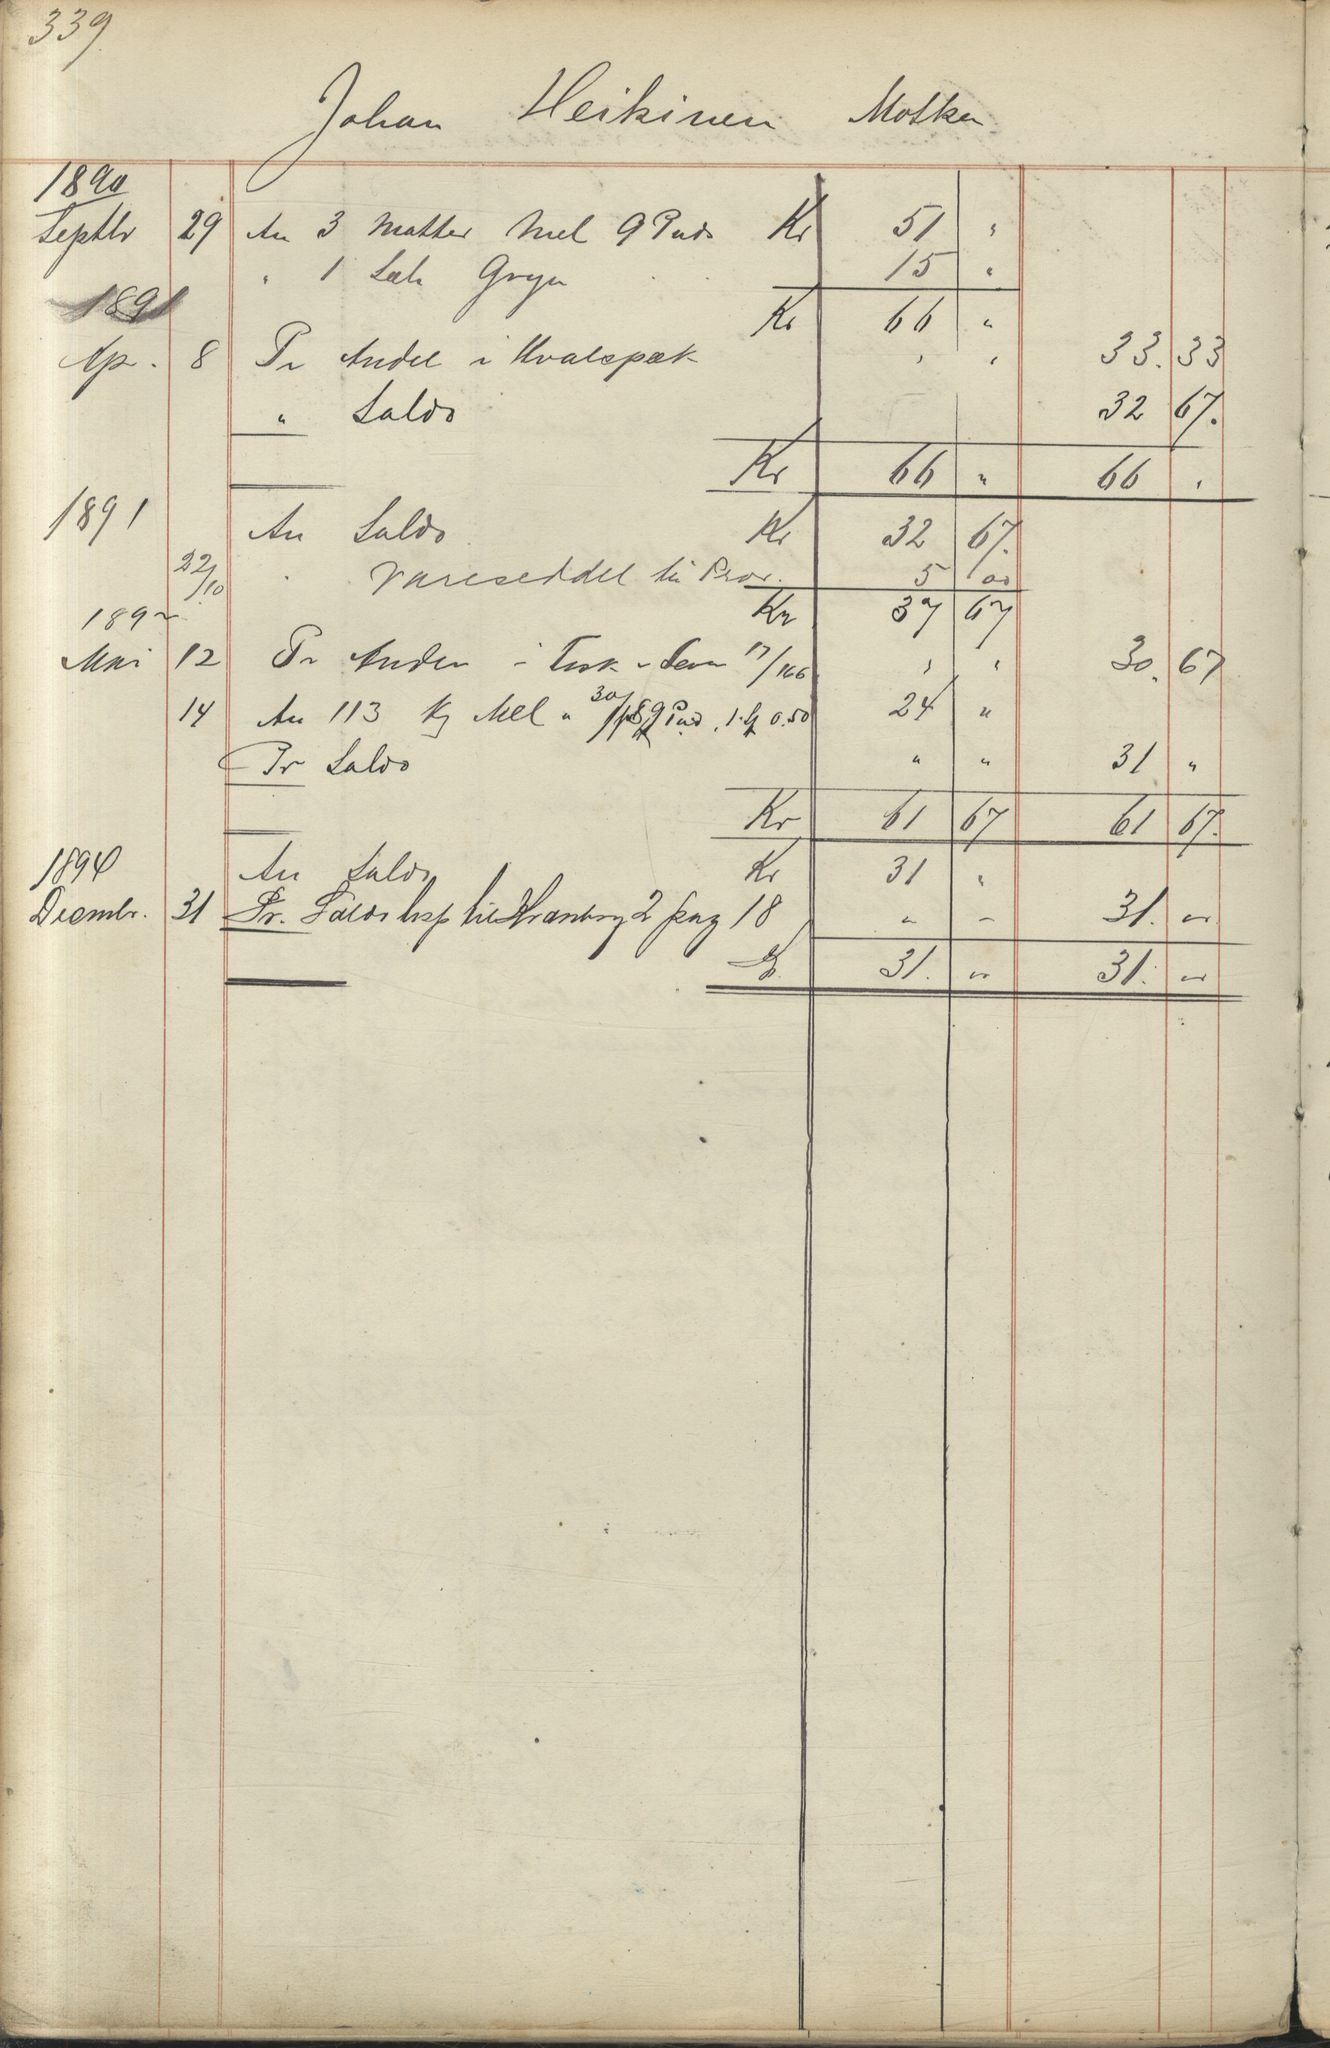 339
Johan Heikinen Motka
1890
Septbr 29 An 3 Matter Mel 9 Puds Kr 51 "
" 1 Sæk Gryn 15 "
1891 Kr 66 "
Ap. 8 Pr Andel i Hvalspæk " " 33. 33
" Saldo 32 67.
Kr 66 " 66 "
1891 An Saldo Kr 32 67.
22/10 " Vareseddel til 5 00
1892 Kr 37 67
Mai 12 Pr Andel i 17/166 " " 30. 67
14 An 113 Kg Mel " 9 Pud 24 "
Pr Saldo " " 31 "
Kr 61 67 61 67.
1894 An Saldo Kr 31 "
Decmbr. 31 Pr. Saldo til 2 pag 18 " " 31. "
Kr. 31. " 31. "